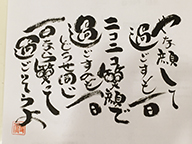 やな顔して
過ごすも一日
ニコニコ顔で
過ごすも一日
どうせ同じ
一日なら笑って
過ごそうよ